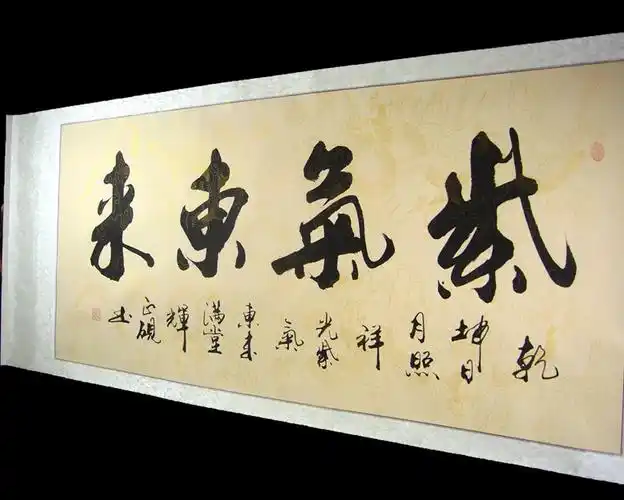 紫氣東来
乾坤日月照祥光紫氣東来滿堂輝
正硯书